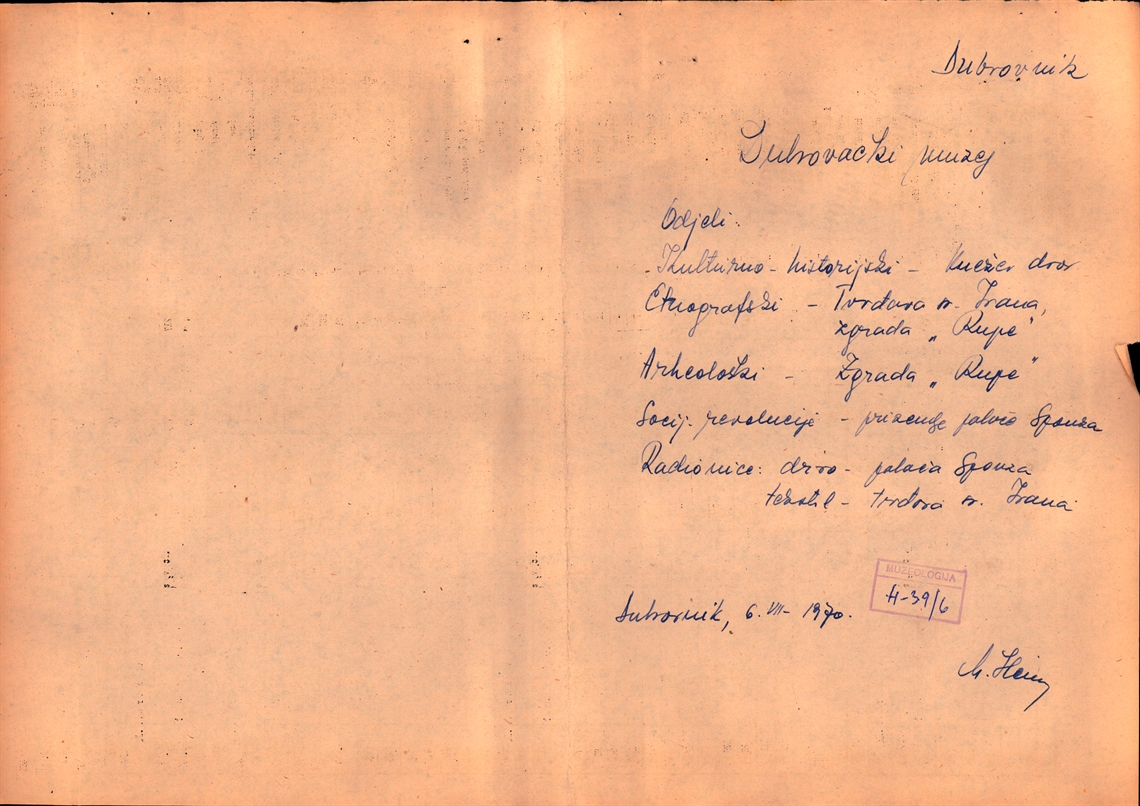 Dubrovnik
Dubrovački muzej
Odjeli:
Kulturno - historijski - Knežev dvor
Etnografski - Tvrđava sv. Ivana,
zgrada „Rupe"
Arheološki - Zgrada „Rupe"
Socij. revolucije - prizemlje palače Sponza
Radionice: drvo - palača Sponza
tekstil - tvrđava sv. Ivana
MUZEOLOGIJA
H-39/6
Dubrovnik, 6. VII - 1970.
M.